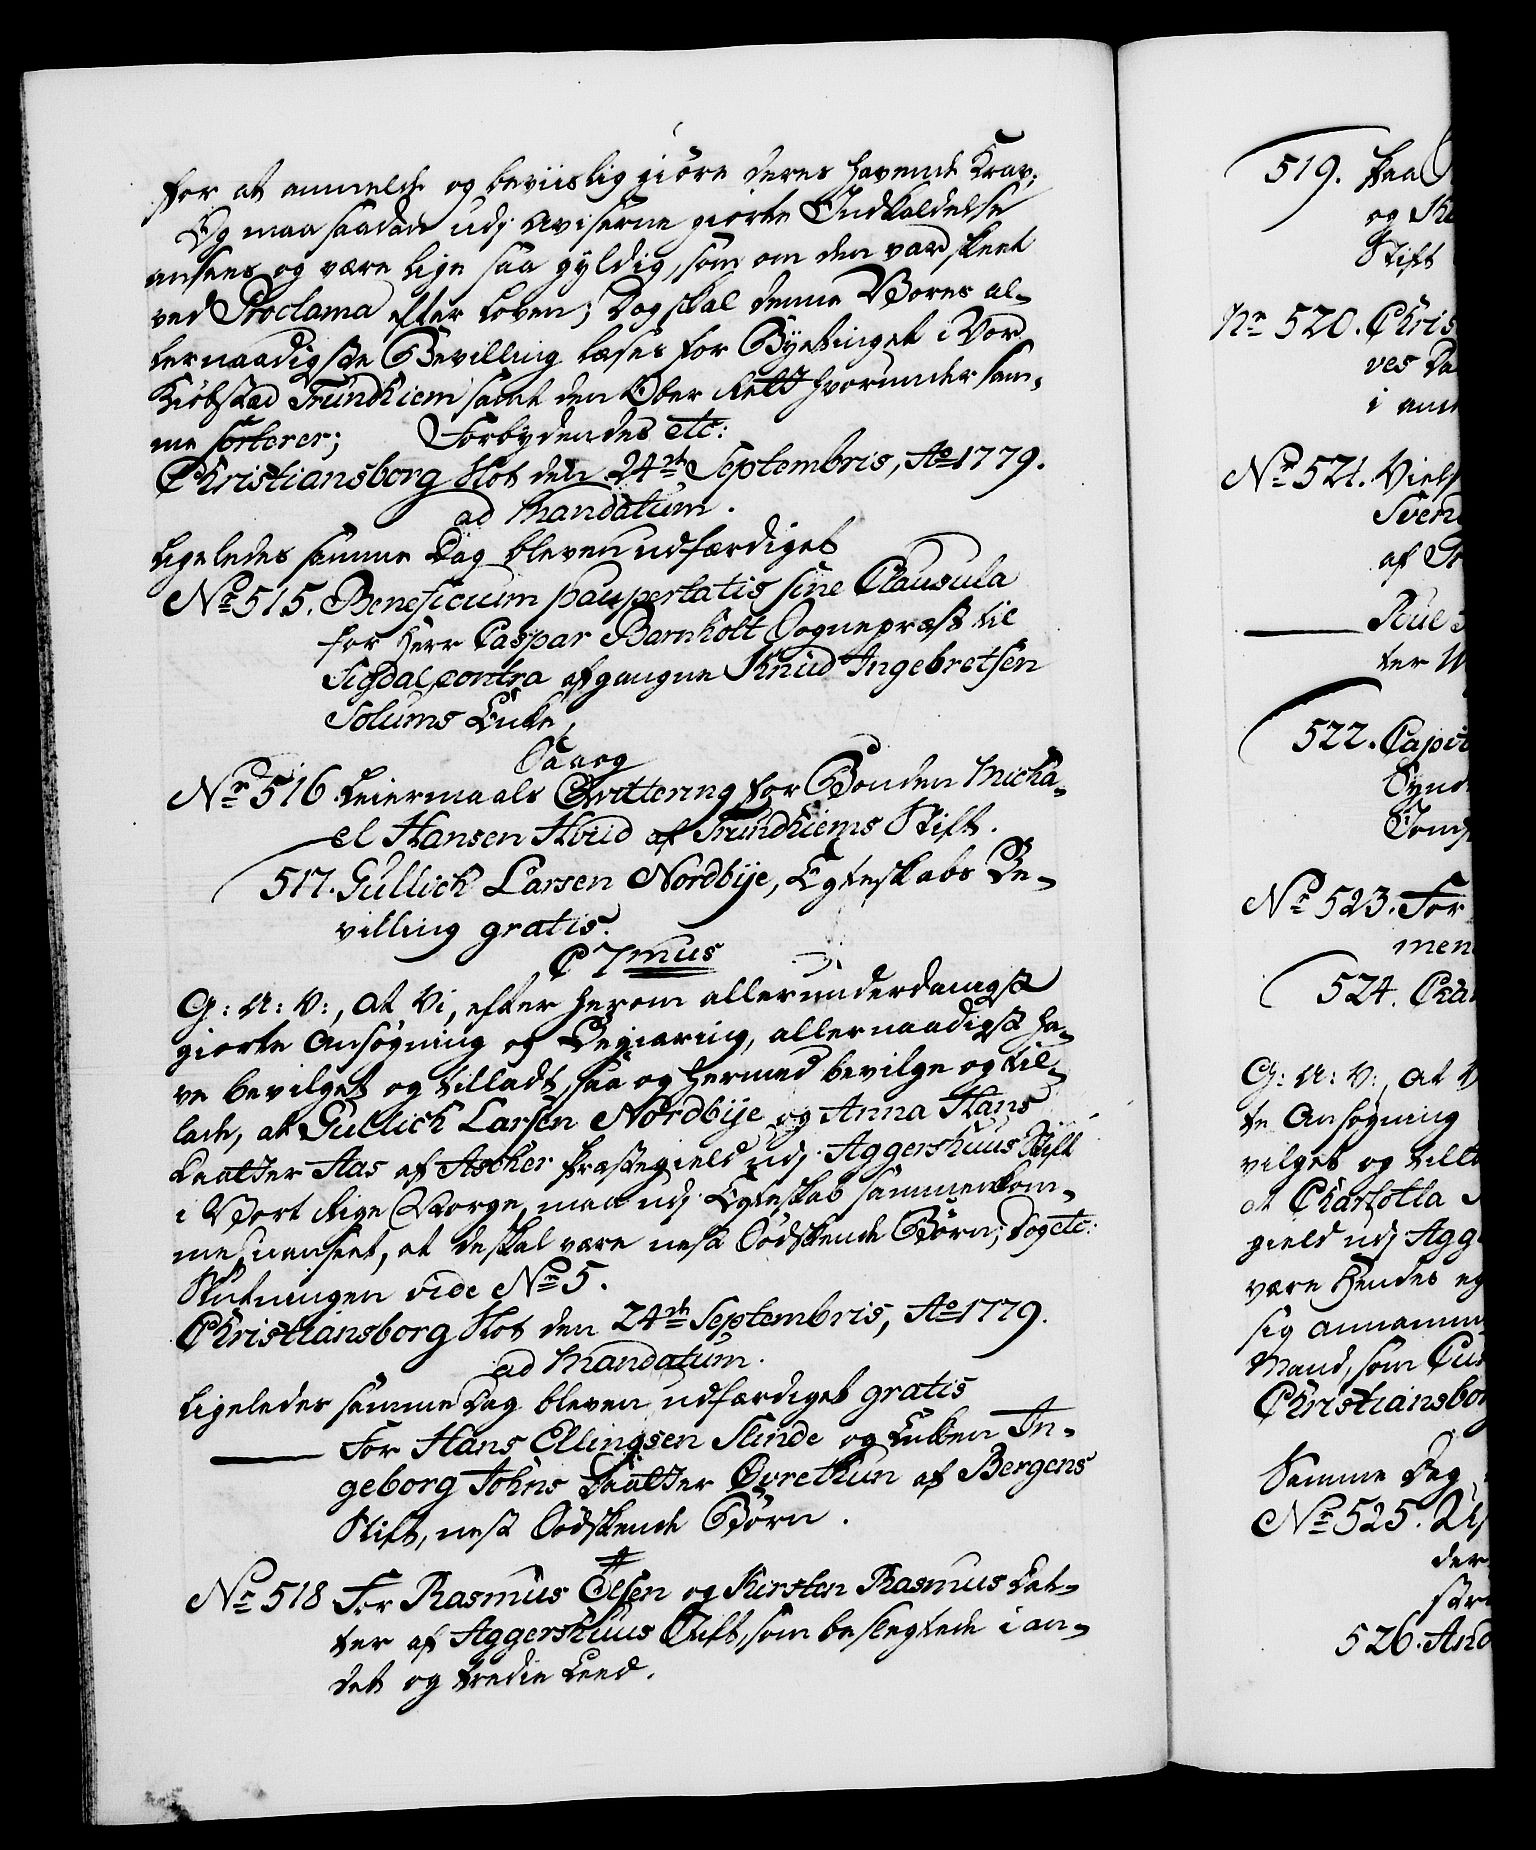 for at anmelde og beviislig giöre deres havende Krav;
Og maa saadan udj Aviserne giorte Indkaldelse
ansees og være lige saa gyldig, som om den var skeet
ved Proclama efter Loven; Dog skal denne Vores al-
lernaadigste Bevilling læses for Byetinget i Vor
Kiöbstad Trundhiem samt den Ober Rett hvorunder sam-
me sorterer; Forbydendes etc:
Christiansborg Slot den 24de Septembris, Ao 1779.
ad Mandatum.
Ligeledes samme Dag bleven udfærdiget
No 515. Beneficium paupertatis sine Clausula
for Herr Caspar Barnholt Sognepræst til
Sigdal, contra afgangne Knud Ingebretsen
Solums Enke,
Saaog
No 516. Leiermaals Qvittering for Bonden Micha-
el Hansen Hvid af Trundhiems Stift.
517. Gullich Larsen Nordbye, Egteskabs Be-
villing gratis.
C 7mus
G: A: V:, At Vi, efter herom allerunderdanigst
giorte Ansögning og Begiæring, allernaadigst ha-
ve bevilget og tilladt, saa og hermed bevilge og til-
lade, at Gullich Larsen Nordbye og Anna Hans
Daatter Aas af Ascher Præstegield udj Aggershuus Stift
i Vort Rige Norge, maa udj Egteskab sammenkom-
me, uanseet, at de skal være nest Södskende Börn; Dog etc:
Slutningen vide No 5.
Christiansborg Slot den 24de Septembris, Ao 1779.
ad Mandatum.
Ligeledes samme Dag bleven udfærdiget gratis
For Hans Ellingsen Slinde og Enken In-
geborg Johns Daatter Qvrethun af Bergens
Stift, nest Södskende Börn.
No 518 For Rasmus Olsen og Kirsten Rasmus Dat-
ter af Aggershuus Stift, som beslegtede i an-
det og tredie Leed.
519. Paa
og
Stift
No 520. Chris
ves
i
No 521. Niels
Svend
af

ter
522. Capit
Synd

No 523. For
men
524. Cha
G: A: V:, At V
te Ansögning
vilget og till
at Charlotta
gield udj Agg
være Hendes eg
sig annamm
Mand, som
Christiansbor
Samme Dag
No 525.
der

526. And